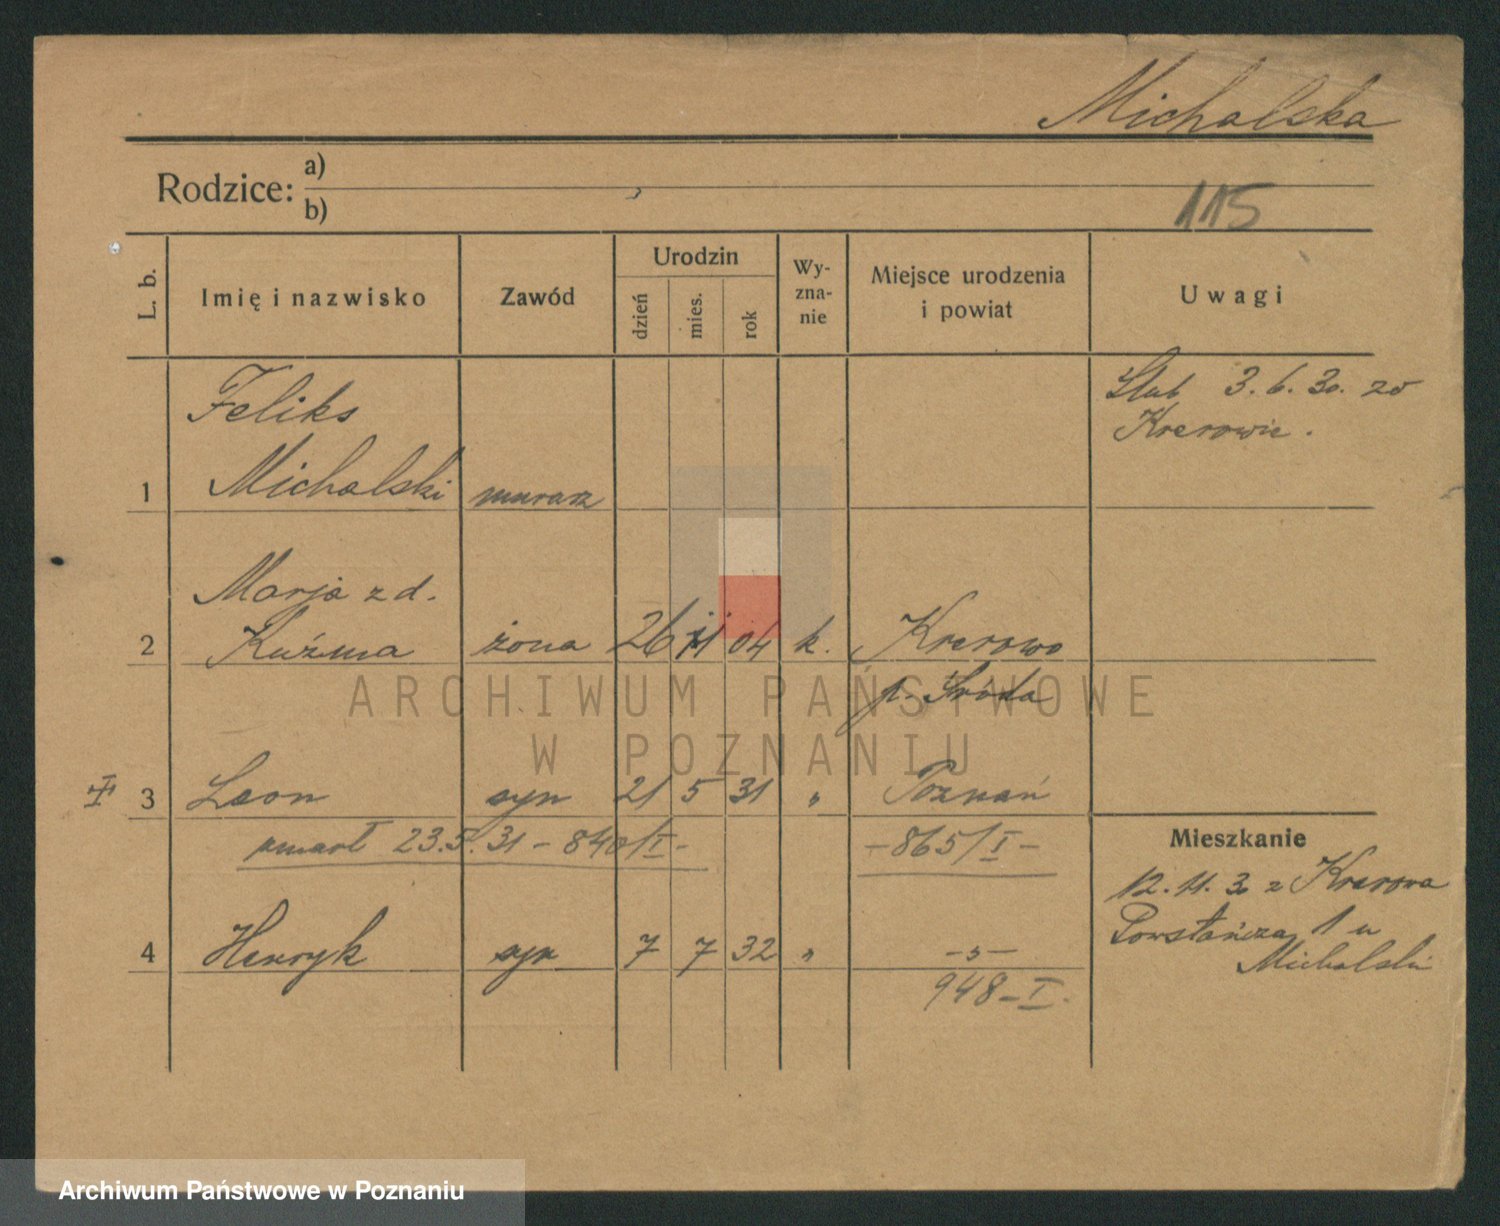 Michalska
Rodzice: a)
b)
115
L. b.
Imię i nazwisko
Zawód
Urodzin
dzień
mies.
rok
Wy-
zna-
nie
Miejsce urodzenia
i powiat
Uwagi
Ślub 3. 6. 30. w
Krerowie.
Feliks
1 Michalski murarz
Marja z d.
2 Kuźma żona 26 11 04 k. Krerowo
p. Środa
3 Leon syn 21 5 31 " Poznań
zmarł 23.5.31 - 840/I - - 865/I -
Mieszkanie
12. 11. 30 z Krerowa
Powstańcza 1 u
Michalski
4 Henryk syn 7 7 32 " - " -
948 - I.
ARCHIWUM PAŃSTWOWE
W POZNANIU
Archiwum Państwowe w Poznaniu